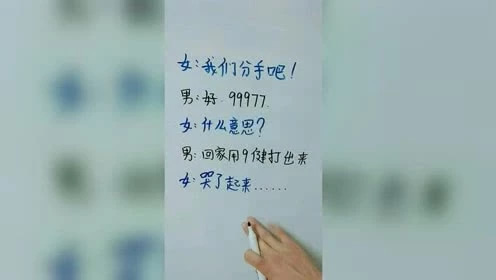 女:我们分手吧!
男:好 99977
女:什么意思?
男:回家用9健打出来
女:哭了起来……